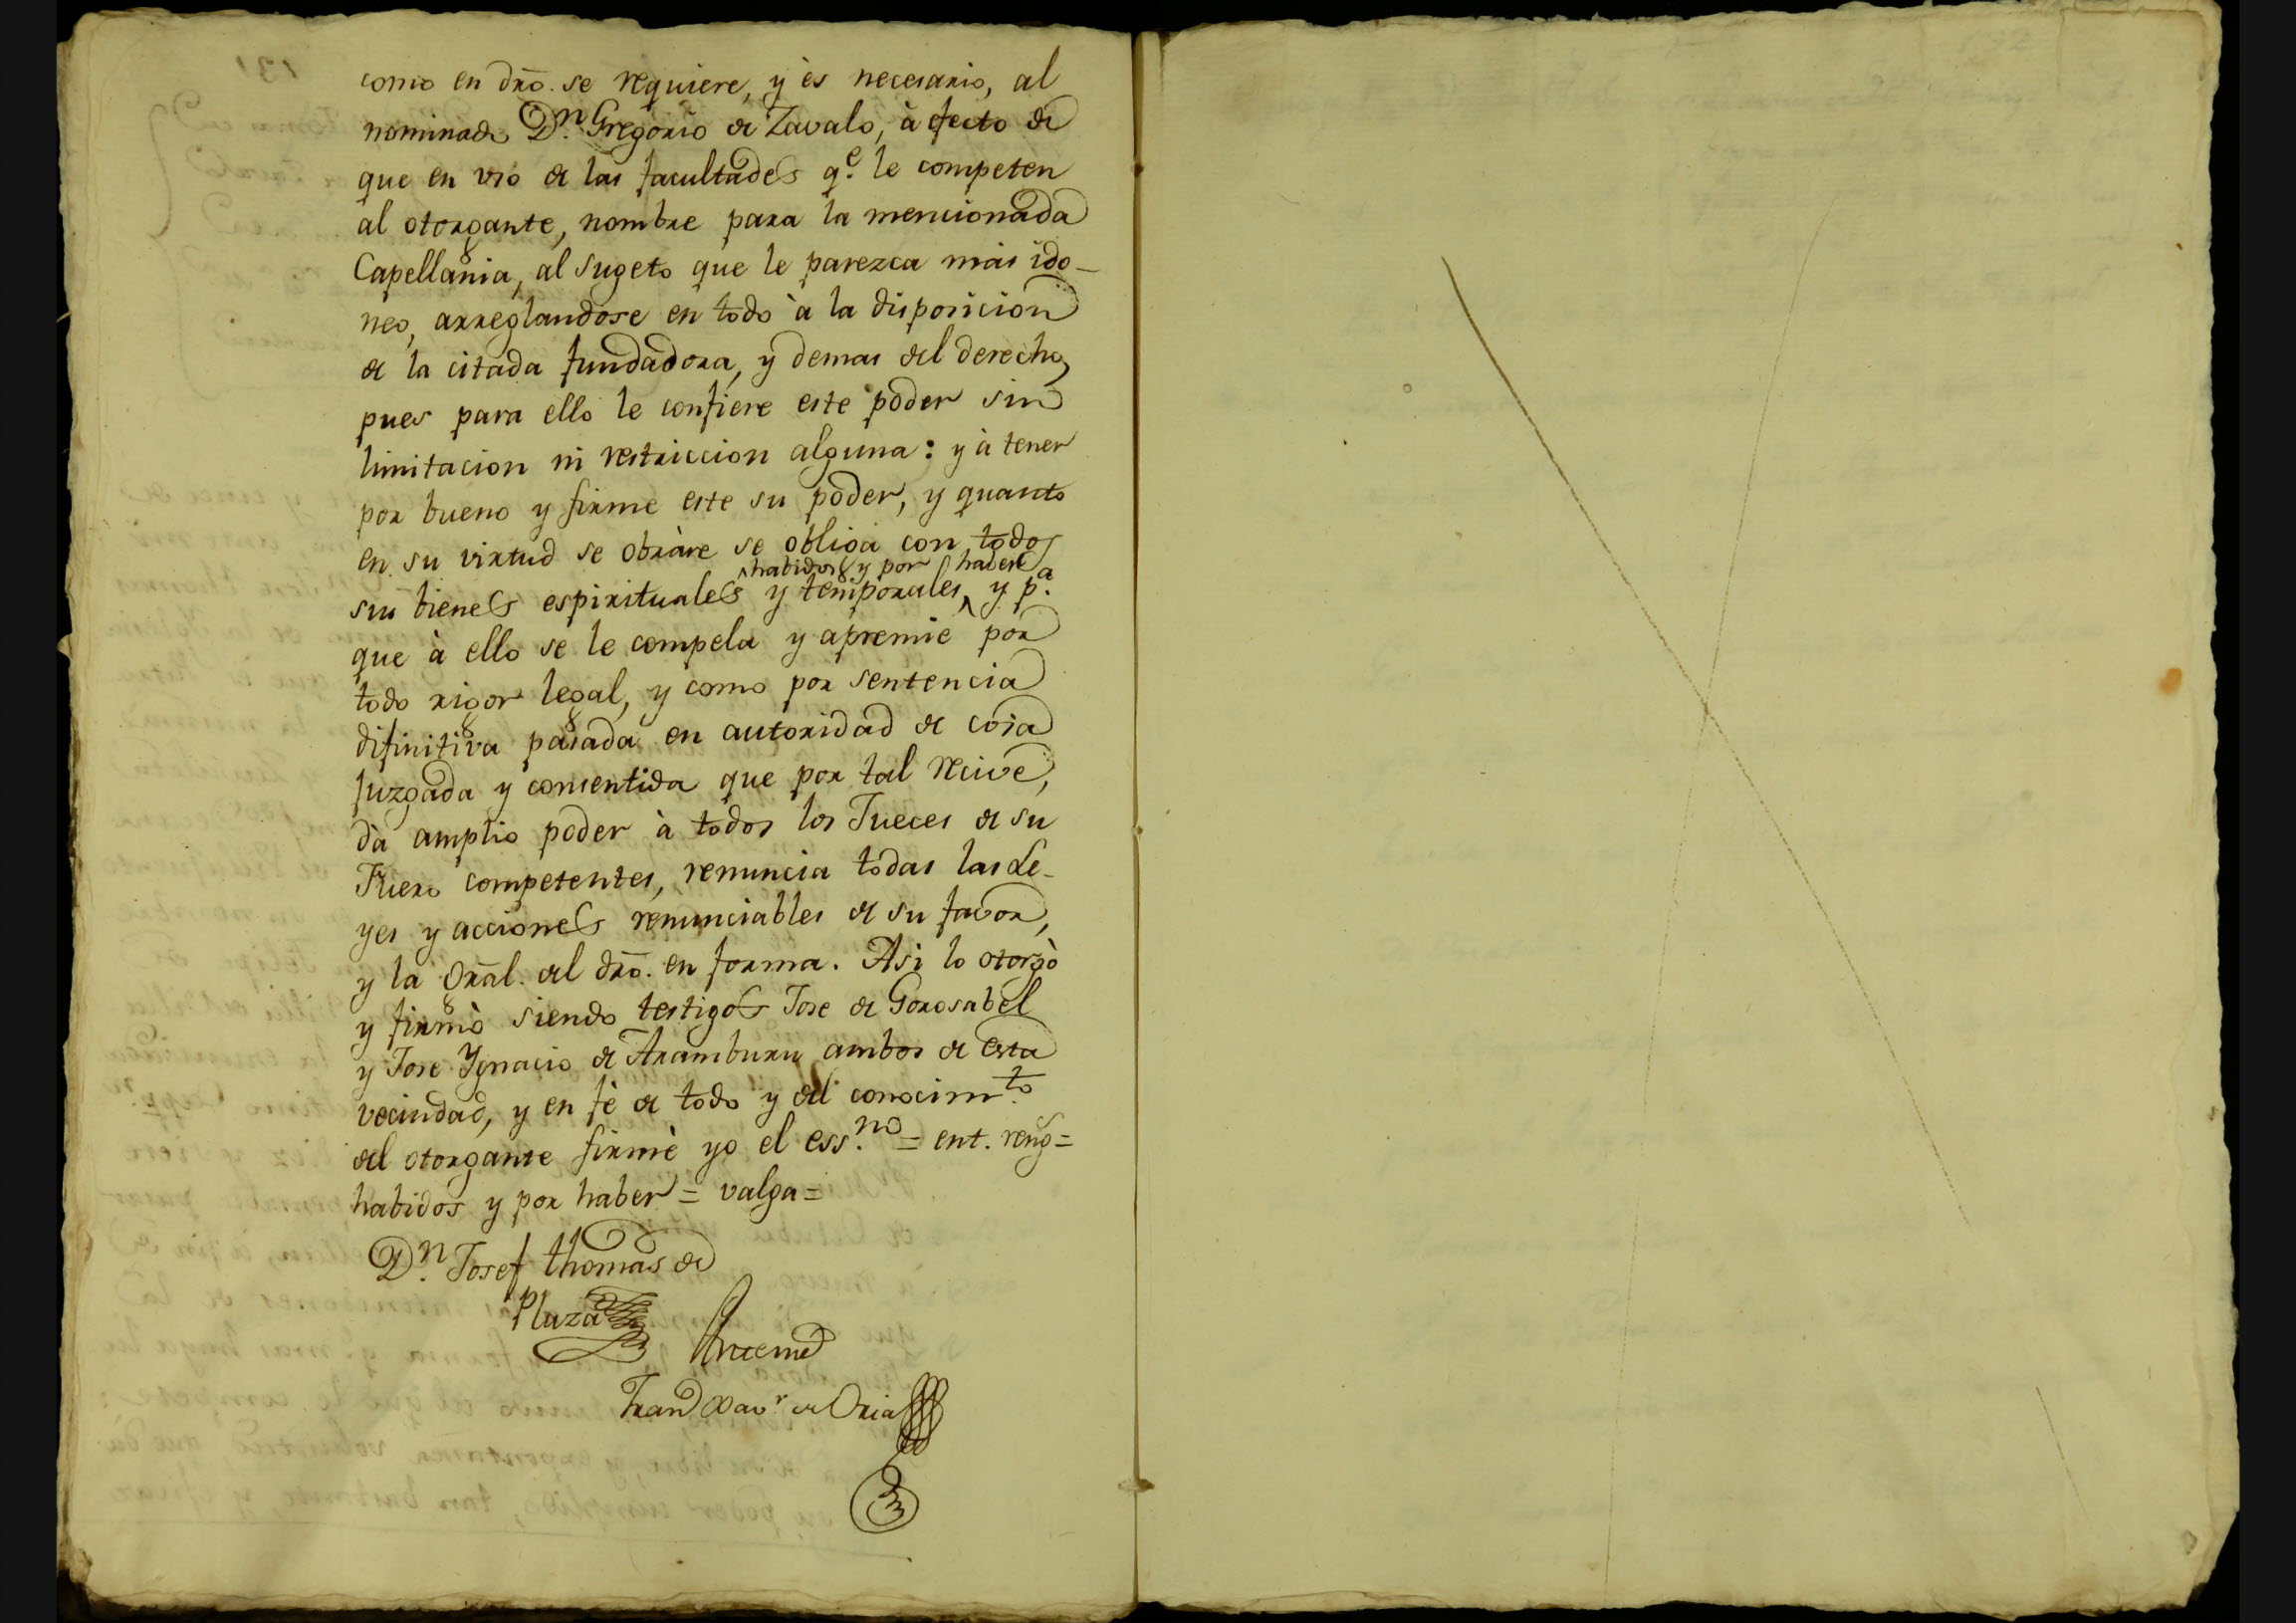 como en dr̃o. se requiere, y ès necesario, al
nominado D.ⁿ Gregorio de Zavalo, à efecto de
que en vso de las facultades q.ᵉ le competen
al otorgante, nombre para la mencionada
Capellania, al sugeto que le parezca mas ido-
neo, arreglandose en todo à la disposicion
de la citada fundadora, y demas del derecho,
pues para ello le confiere este poder sin
limitacion ni restriccion alguna: y à tener
por bueno y firme este su poder, y quanto
en su virtud se obràre se obliga con todos
^habidos y por haber
sus bienes espirituales y temporales^ y p.ᵃ
que à ello se le compela y apremie por
todo rigor legal, y como por sentencia
difinitiva pasada en autoridad de cosa
juzgada y consentida que por tal recive,
dà amplio poder à todos los Jueces de su
Fuero competentes, renuncia todas las Le-
yes y acciones renunciables de su favor,
y la Gr̃al. del dr̃o. en forma. Asi lo otorgò
y firmò siendo testigos Jose de Gorosabel
y Jose Ygnacio de Aramburu ambos de esta
vecindad, y en fè de todo y del conocim.ᵗᵒ
del otorgante firmè yo el ess.ⁿᵒ = ent. reng=
habidos y por haber = valga =
D.ⁿ Josef thomas de
Plaza
Antemi
Fran Xavʳ de Oria
131